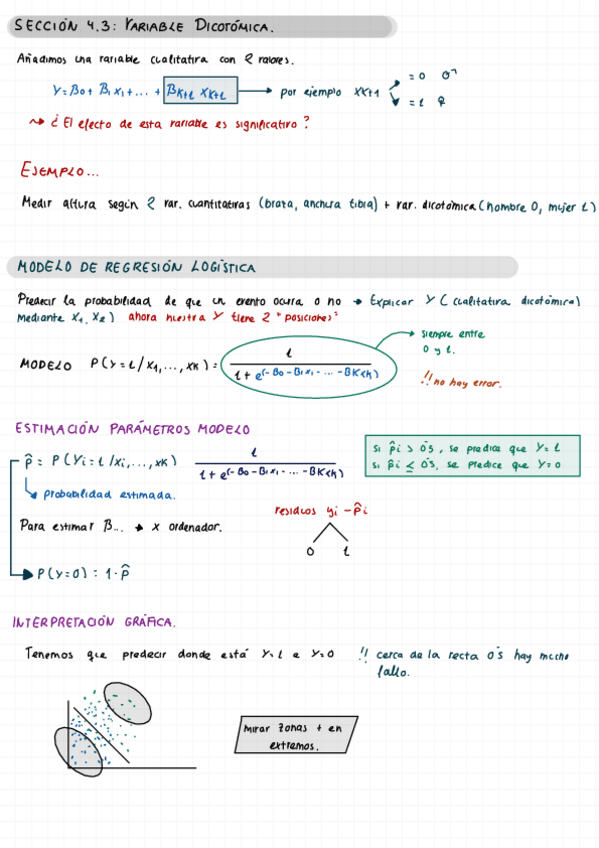 SECCIÓN 4.3: VARIABLE DICOTÓMICA.
Añadimos una variable cualitativa con 2 valores.
Y = B0 + B1 X1 + ... + BK+1 XK+1 → por ejemplo XK+1 = 0 ♂
= 1 ♀
↝ ¿El efecto de esta variable es significativo?
EJEMPLO...
Medir altura según 2 var. cuantitativas (braza, anchura tibia) + var. dicotómica (hombre 0, mujer 1)
MODELO DE REGRESIÓN LOGÍSTICA
Predecir la probabilidad de que un evento ocurra o no → Explicar Y (cualitativa dicotómica)
mediante X1, X2) ahora nuestra Y tiene 2 "posiciones"
siempre entre
0 y 1.
MODELO P(Y=1/X1,...,XK) = 1 / 1 + e(-B0-B1X1-...-BKXK)
!! no hay error.
ESTIMACIÓN PARÁMETROS MODELO
p̂ = P(Yi=1/Xi,...,XK) 1 / 1 + e(-B0-B1X1-...-BKXK)
Si p̂i > 0'5, se predice que Y=1
Si p̂i ≤ 0'5, se predice que Y=0
probabilidad estimada.
residuos yi - p̂i
Para estimar B... → x ordenador.
0 1
P(Y=0) = 1-p̂
INTERPRETACIÓN GRÁFICA.
Tenemos que predecir donde está Y=1 e Y=0 !! cerca de la recta 0'5 hay mucho
fallo.
Mirar zonas + en
extremos.